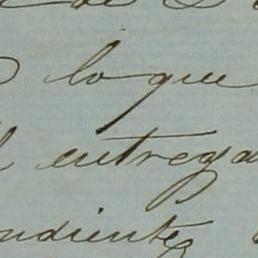 de
lo que
entrega
ndiente